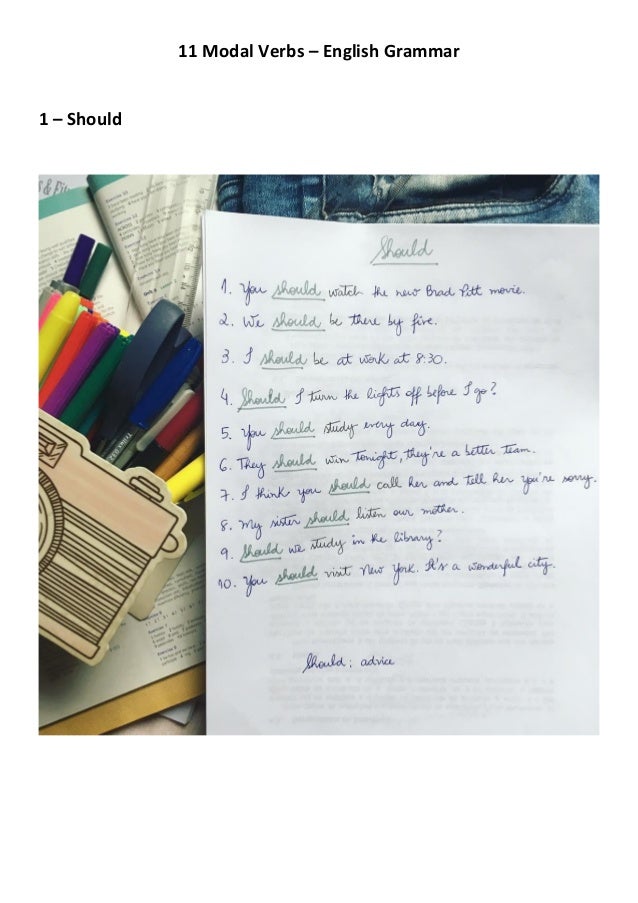 11 Modal Verbs – English Grammar
1 – Should
Should
1. You should watch the new Brad Pitt movie.
2. We should be there by five.
3. I should be at work at 8:30.
4. Should I turn the lights off before I go?
5. You should study every day.
6. They should win tonight, they're a better team.
7. I think you should call her and tell her you're sorry.
8. My sister should listen our mother.
9. Should we study in the library?
10. You should visit New York. It's a wonderful city.
Should: advice